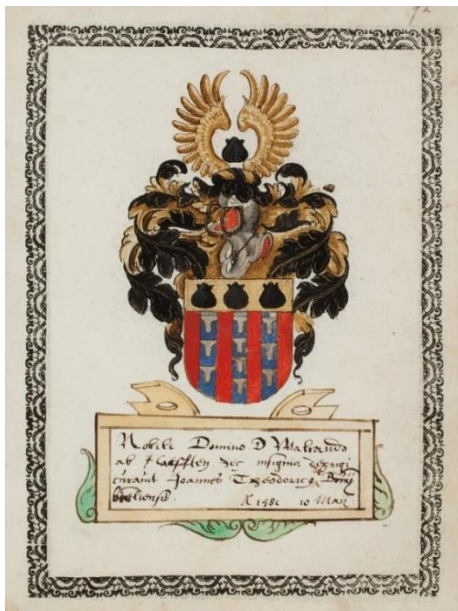 Nobili Domino D Walrando
ab hec insignia depingi
curavit Joannes Theodoricq
A 1581 10 Maij